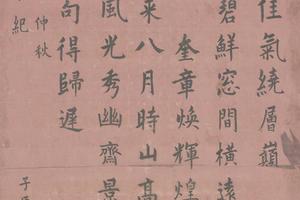 佳氣繞層巔
碧鮮窓間橫遠
奎章煥輝煌
來八月時山髙
風光秀幽齋景
句得歸遲
仲秋
紀
子